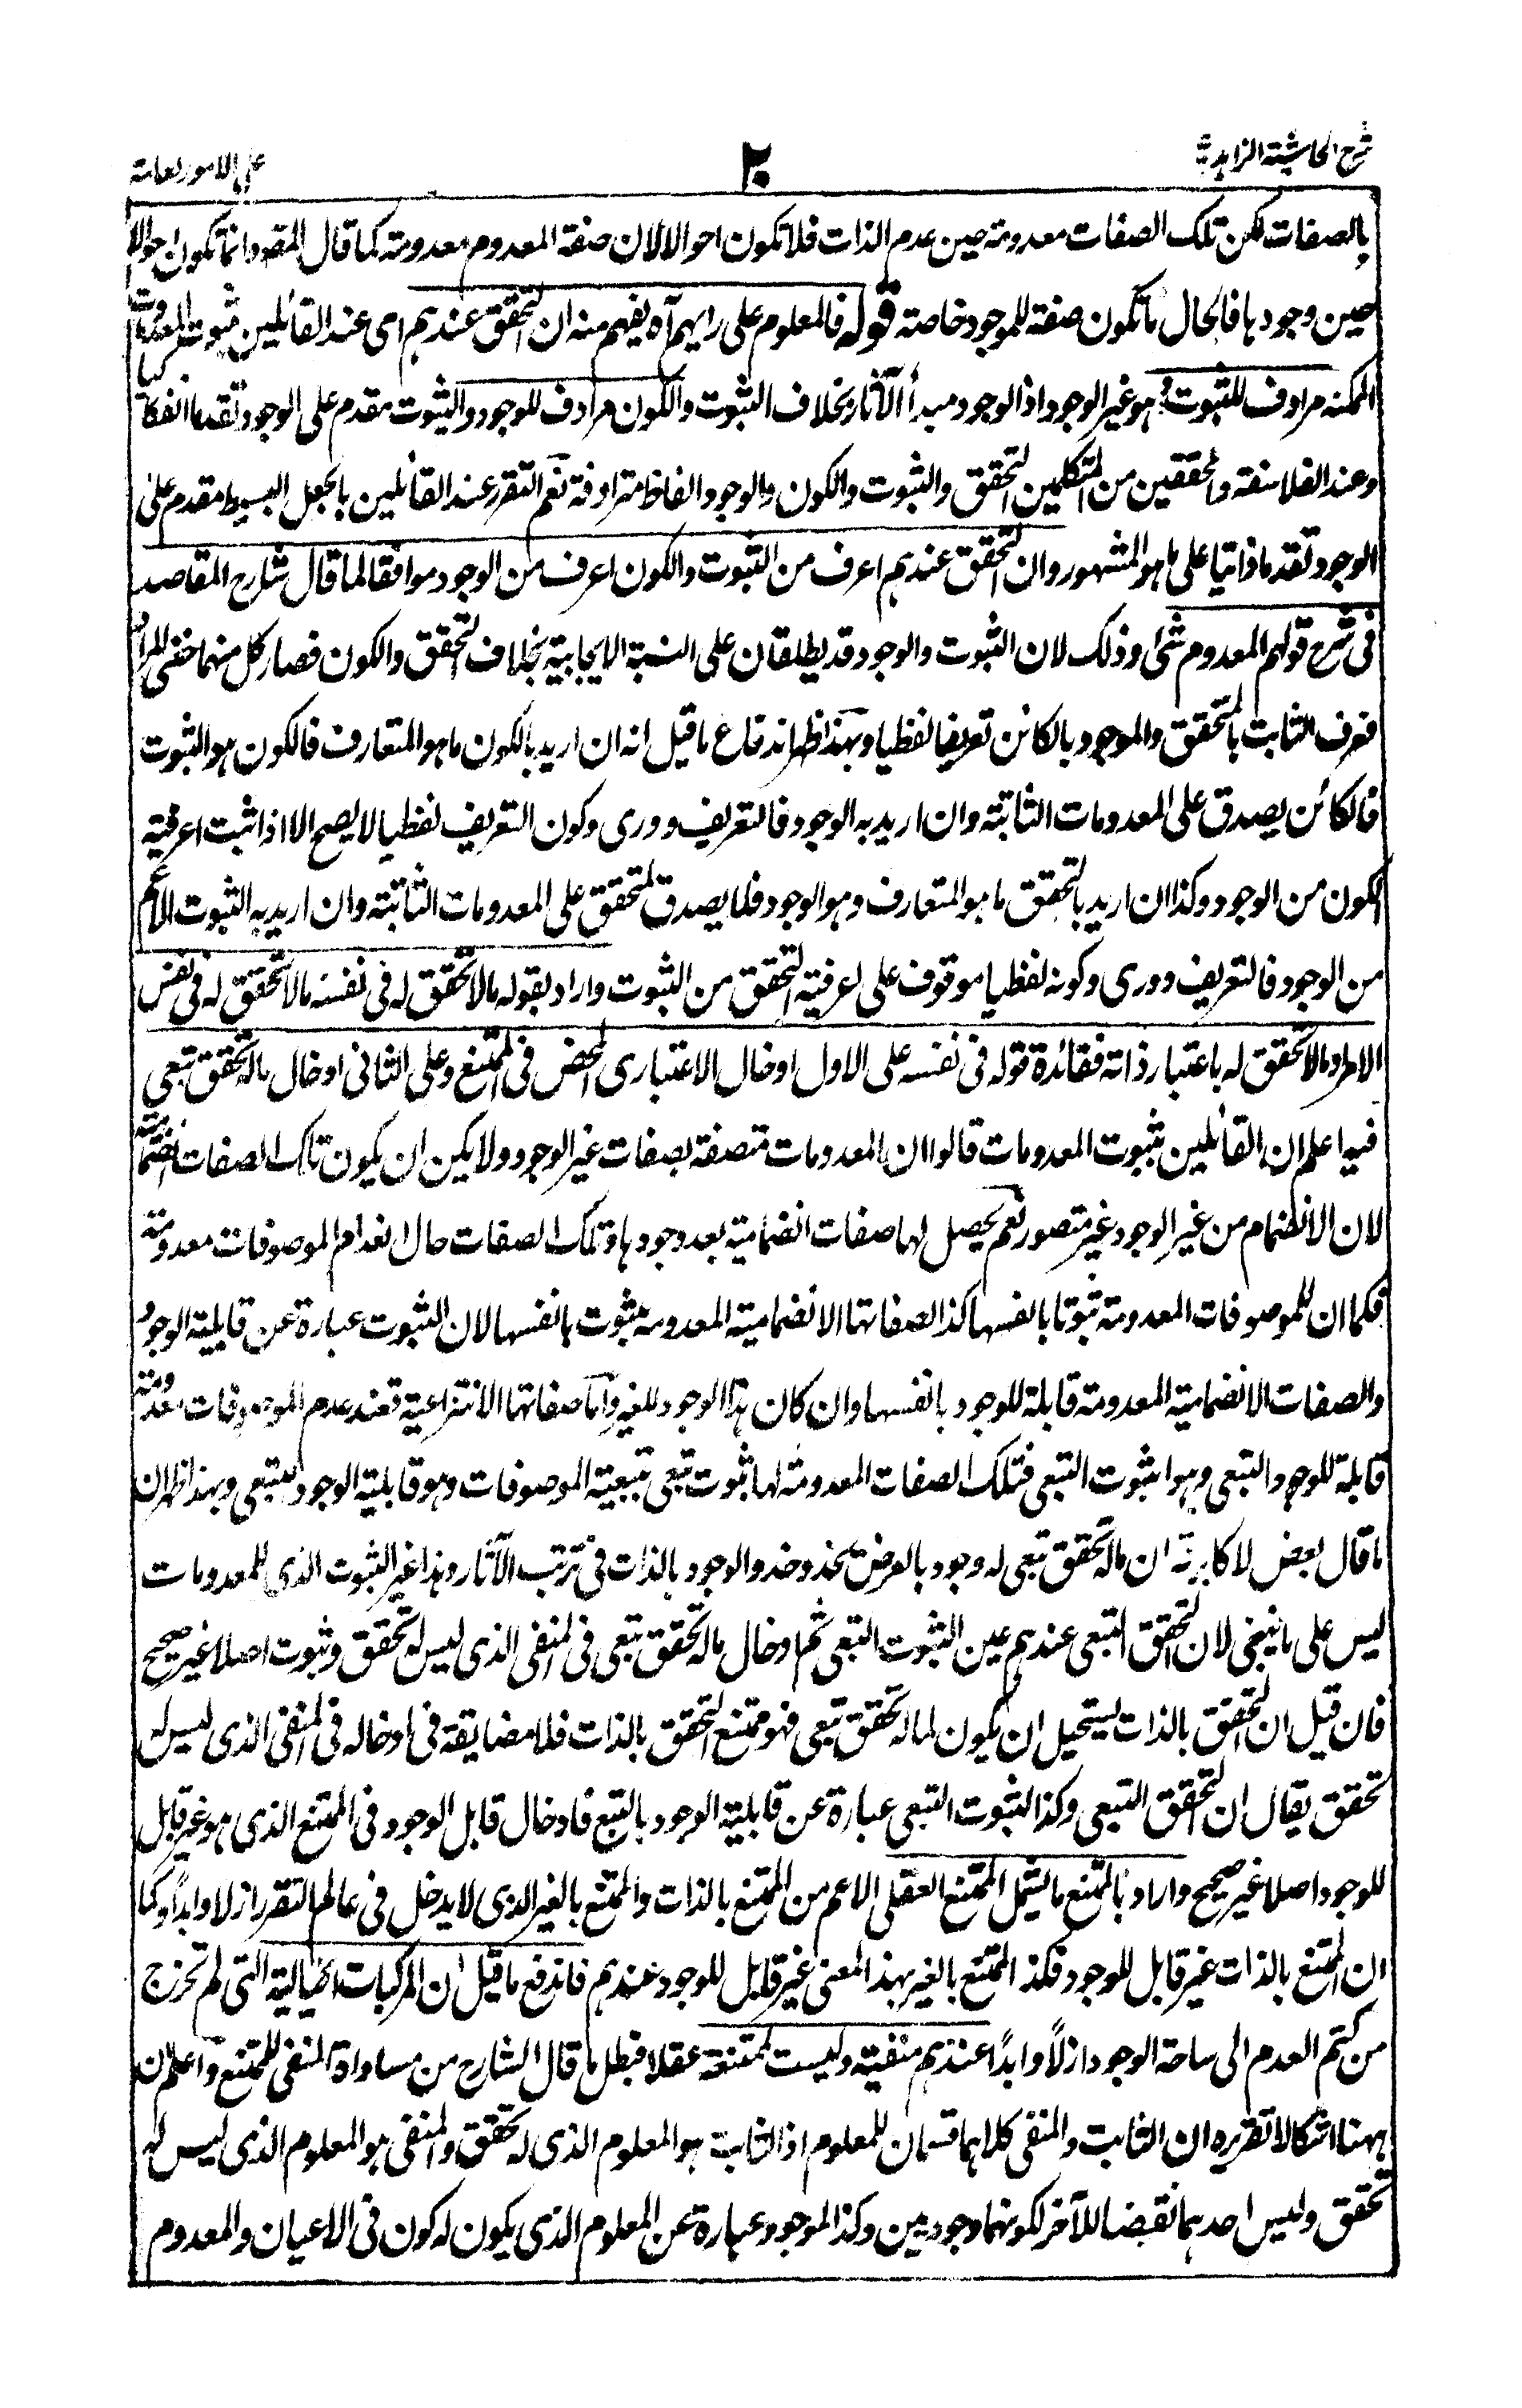 شرح الحاشية الزاهدية
٢٠
على الامور العامة
بالصفات لكن تلك الصفات معدومة حين عدم الذات فلا تكون احوالا لان صفة المعدوم معدومة كما قال المقصود انما تكون احوالا
حين وجودها فالحال ما تكون صفة للموجود خاصة قوله فالمعلوم على رايهم آه يفهم منه ان التحقق عندهم اى عند القائلين بثبوت المعدومات
الممكنة مرادف للثبوت وهو غير الوجود اذ الوجود مبدأ الآثار بخلاف الثبوت والكون مرادف للوجود والثبوت مقدم على الوجود تقدما انفكاكيا
وعند الفلاسفة والمحققين من المتكلمين التحقق والثبوت والكون والوجود الفاظ مترادفة نعم التقرر عند القائلين بالجعل البسيط مقدم على
الوجود تقدما ذاتيا على ما هو المشهور وان التحقق عندهم اعرف من الثبوت والكون اعرف من الوجود موافقا لما قال شارح المقاصد
فى شرح قولهم المعدوم شئ وذلك لان الثبوت والوجود قد يطلقان على النسبة الايجابية بخلاف التحقق والكون فصار كل منهما خفى المراد
فعرف الثابت بالمتحقق والموجود بالكائن تعريفا لفظيا وبهذا ظهر اندفاع ما قيل انه ان اريد بالكون ما هو المتعارف فالكون هو الثبوت
فالكائن يصدق على المعدومات الثابتة وان اريد به الوجود فالتعريف دورى وكون التعريف لفظيا لا يصح الا اذا ثبت اعرفية
الكون من الوجود وكذا ان اريد بالتحقق ما هو المتعارف وهو الوجود فلا يصدق المتحقق على المعدومات الثابتة وان اريد به الثبوت الاعم
من الوجود فالتعريف دورى وكونه لفظيا موقوف على اعرفية التحقق من الثبوت واراد بقوله مالا تحقق له فى نفسه مالا تحقق له فى نفس
الامر ومالا تحقق له باعتبار ذاته ففائدة قوله فى نفسه على الاول ادخال الاعتبارى المحض فى الممتنع وعلى الثانى ادخال ماله تحقق تبعى
فيه اعلم ان القائلين بثبوت المعدومات قالوا ان المعدومات متصفة بصفات غير الوجود ولا يمكن ان يكون تلك الصفات انضمامية
لان الانضمام من غير الوجود غير متصور نعم يحصل لها صفات انضمامية بعد وجودها وتلك الصفات حال انعدام الموصوفات معدومة
فكما ان للموصوفات المعدومة ثبوتا بانفسها كذا لصفاتها الانضمامية المعدومة ثبوت بانفسها لان الثبوت عبارة عن قابلية الوجود
والصفات الانضمامية المعدومة قابلة للوجود بانفسها وان كان هذا الوجود للغير واما صفاتها الانتزاعية فعند عدم الموصوفات معدومة
قابلة للوجود التبعى وهو الثبوت التبعى فتلك الصفات المعدومة لها ثبوت تبعى بتبعية الموصوفات وهو قابلية الوجود التبعى وبهذا ظهر ان
ما قال بعض الاكابر ان ماله تحقق تبعى له وجود بالعرض يحذو حذو الوجود بالذات فى ترتب الآثار وهذا غير الثبوت الذى للمعدومات
ليس على ما ينبغى لان التحقق التبعى عندهم عين الثبوت التبعى ثم ادخال ماله تحقق تبعى فى المنفى الذى ليس له تحقق وثبوت اصلا غير صحيح
فان قيل ان التحقق بالذات يستحيل ان يكون لما له تحقق تبعى فهو ممتنع التحقق بالذات فلا مضايقة فى ادخاله فى المنفى الذى ليس له
تحقق يقال ان التحقق التبعى وكذا الثبوت التبعى عبارة عن قابلية الوجود بالتبع فادخال قابل الوجود فى الممتنع الذى هو غير قابل
للوجود اصلا غير صحيح واراد بالممتنع ما يشمل الممتنع العقلى الاعم من الممتنع بالذات والممتنع بالغير الذى لا يدخل فى عالم التقرر ازلا وابدا وكما
ان الممتنع بالذات غير قابل للوجود فكذا الممتنع بالغير بهذا المعنى غير قابل للوجود عندهم فاندفع ما قيل ان المركبات الخيالية التى لم تخرج
من كتم العدم الى ساحة الوجود ازلاً وابداً عندهم منفية وليست ممتنعة عقلا فبطل ما قال الشارح من مساواة المنفى للممتنع واعلم ان
ههنا اشكالا تقريره ان الثابت والمنفى كلاهما قسمان للمعلوم اذ الثابت هو المعلوم الذى له تحقق والمنفى هو المعلوم الذى ليس له
تحقق وليس احدهما نقيضا للآخر لكونهما وجوديين وكذا الموجود عبارة عن المعلوم الذى يكون له كون فى الاعيان والمعدوم